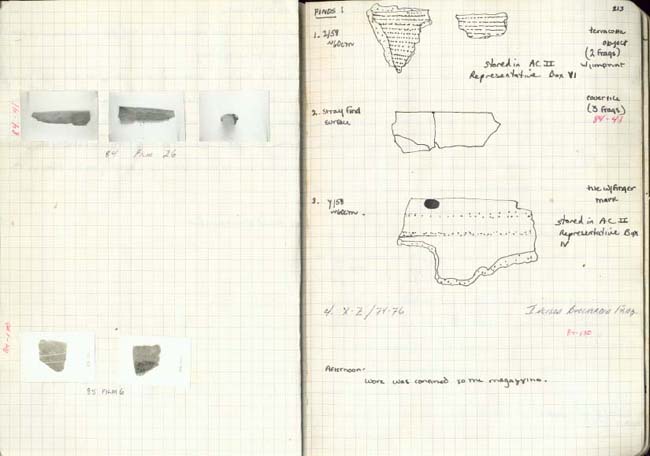 84-41
84 FILM 26
84-130
85 FILM 6
213
FINDS:
1. Z/58
~60cm
terracotta
object
(2 frags)
w/imprint
stored in AC II
Representative Box VI
2. stray find
surface
cover tile
(3 frags)
84-41
3. Y/58
~60cm.
tile w/finger
mark
stored in AC II
Representative Box
IV
4. X-Z/74-76
Incised Bucchero Frag.
84-130
Afternoon-
Work was confined to the magazzino.